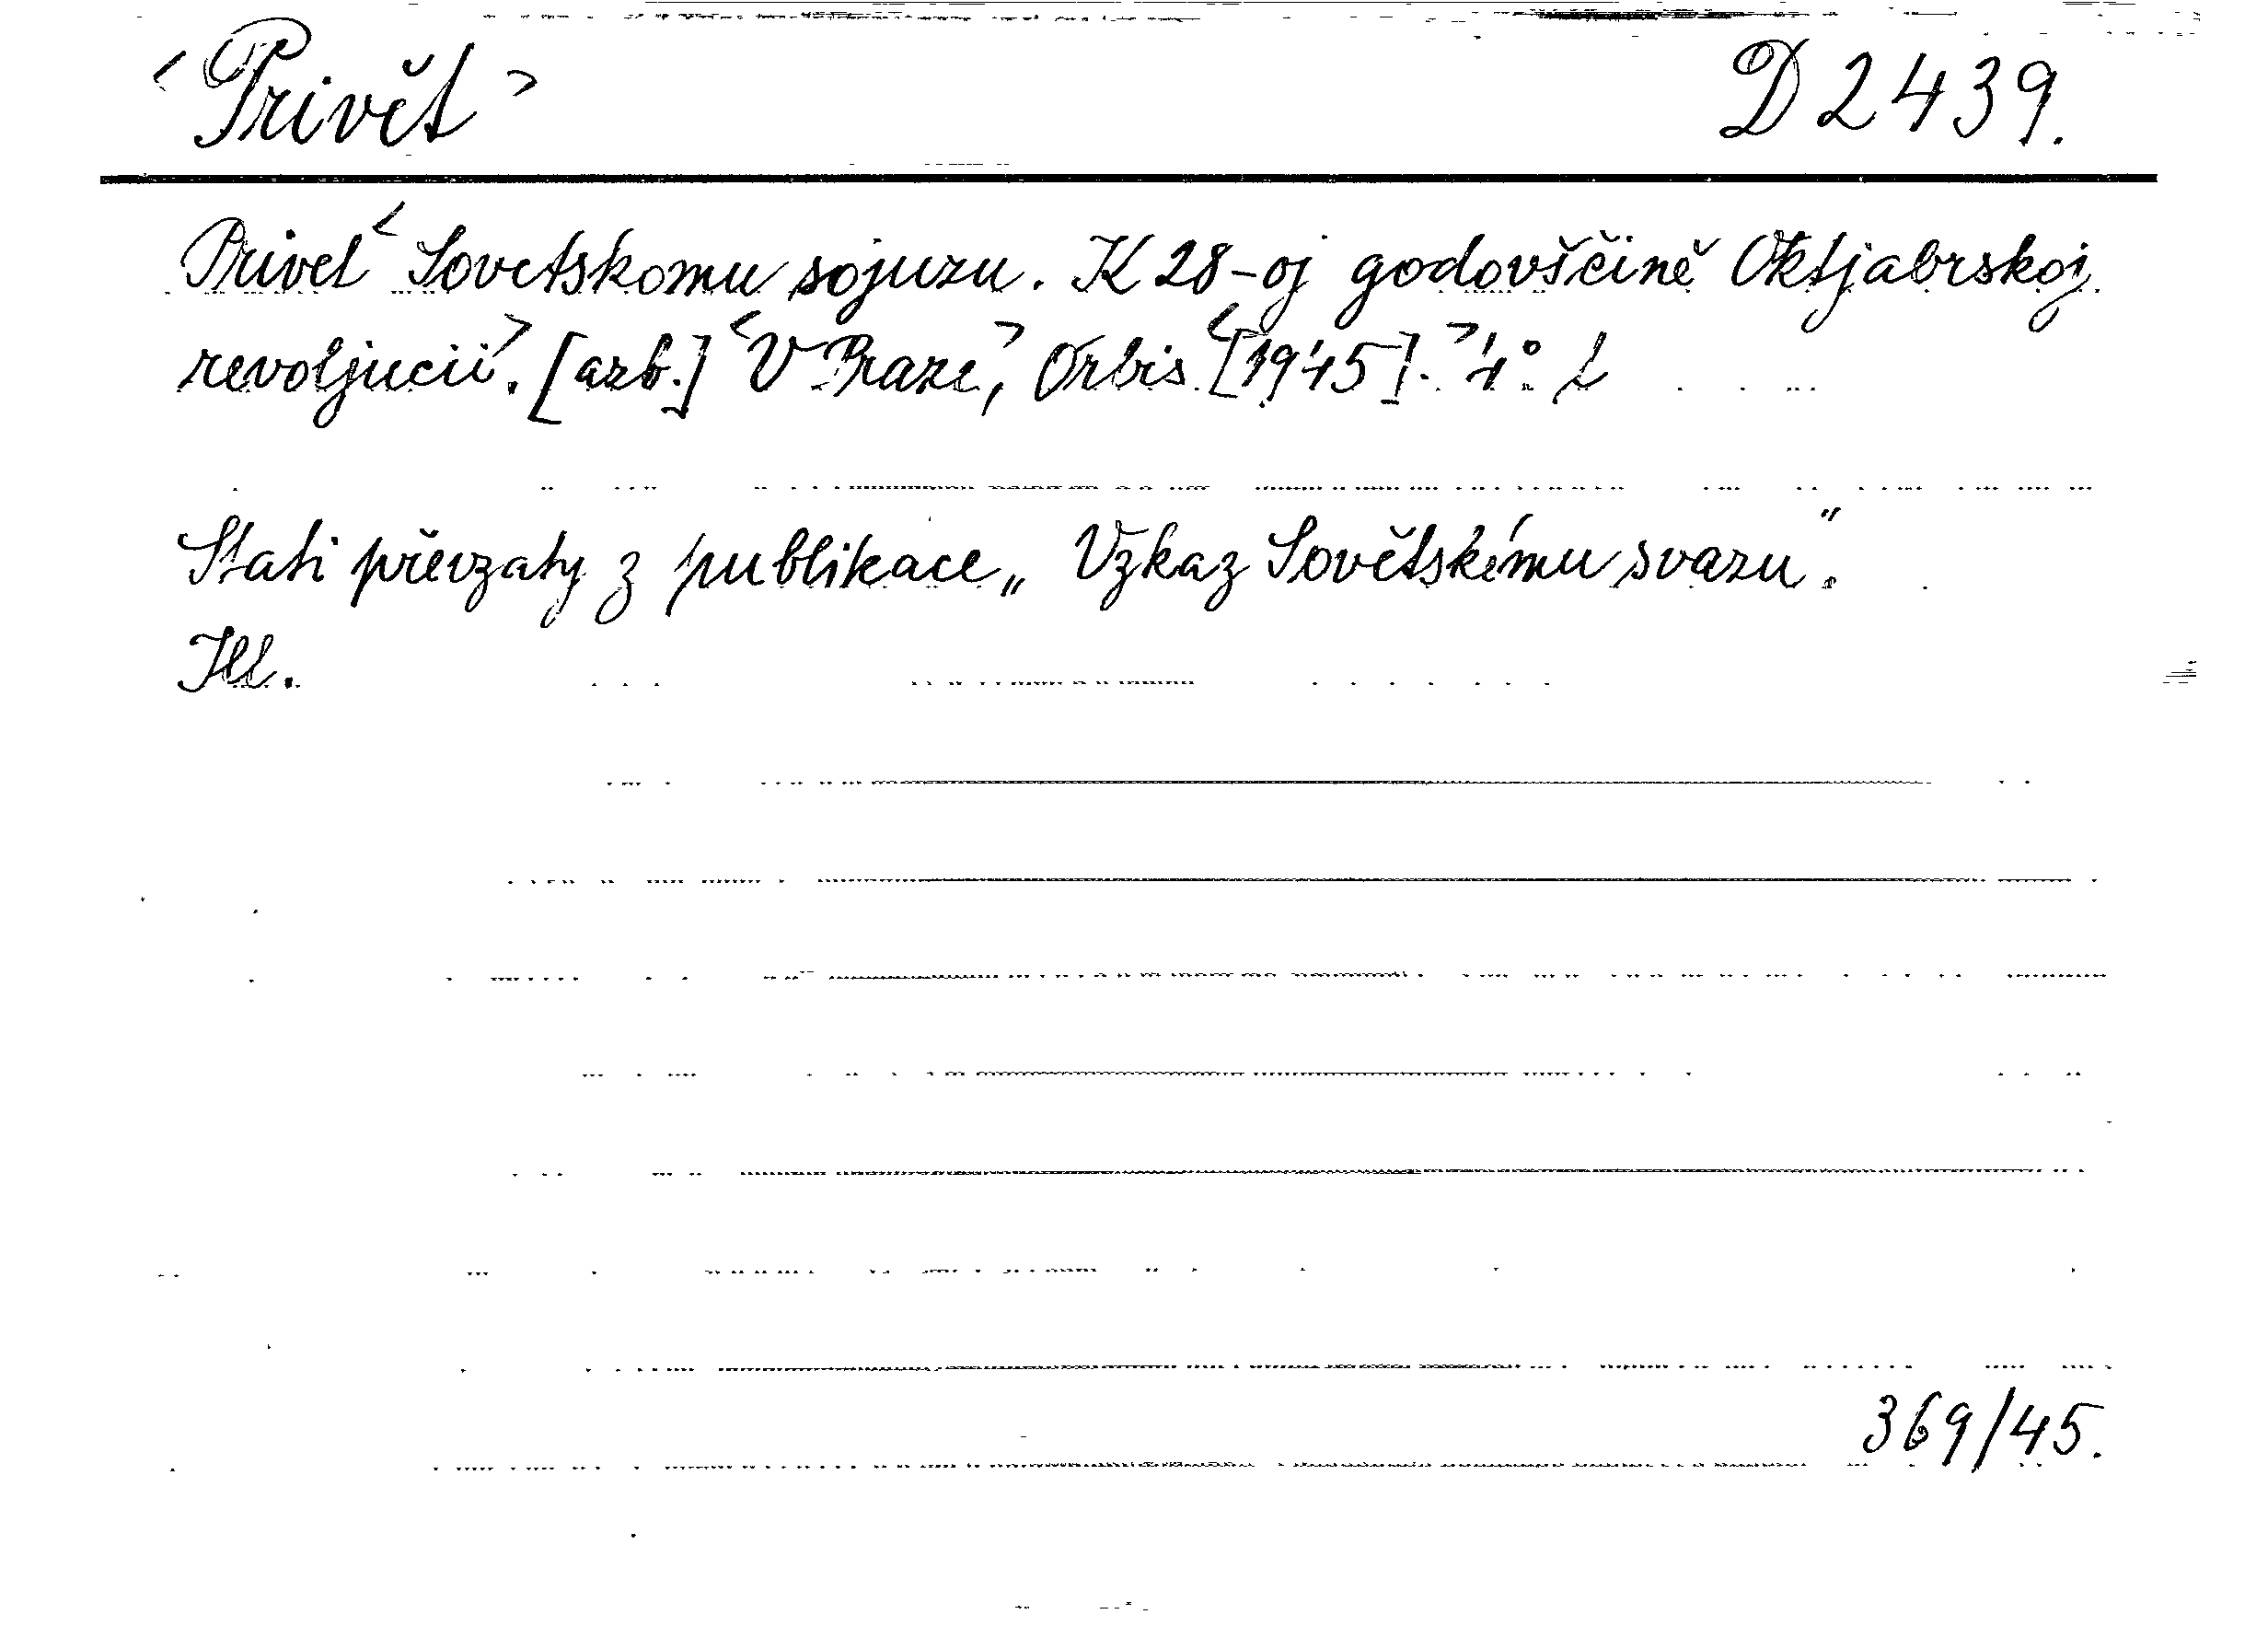 <Privět>
D 2439.
Privet <Sovetskomu sojuzu. K 28-oj godovščině Oktjabrskoj
revoljucii>. [azb.] <V Praze>, Orbis <[1945].> 4°.
Stati převzaty z publikace „Vzkaz Sovětskému svazu".
Ill.
369/45.